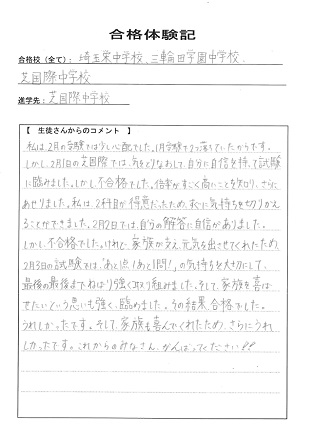 合格体験記
合格校（全て）：埼玉栄中学校、三輪田学園中学校、
芝国際中学校
進学先：芝国際中学校
【 生徒さんからのコメント 】
私は2月の受験では少し心配でした。1月受験で2つ落ちていたからです。
しかし、2月1日の芝国際では、気をとりなおして、自分に自信を持って試験
に臨みました。しかし、不合格でした。倍率がすごく高いことを知り、さらに
あせりました。私は、2科目が得意だったため、すぐに気持ちを切りかえ
ることができました。2月2日では、自分の解答に自信がありました。
しかし、不合格でした。けれど、家族が支え、元気を出させてくれたため、
2月3日の試験では、「あと1点!あと1問!」の気持ちを大切にして、
最後の最後までねばり強く取り組みました。そして、家族を喜ば
せたいという思いも強く、臨めました。その結果、合格でした。
うれしかったです。そして、家族も喜んでくれたため、さらにうれ
しかったです。これからのみなさん、がんばってください!!